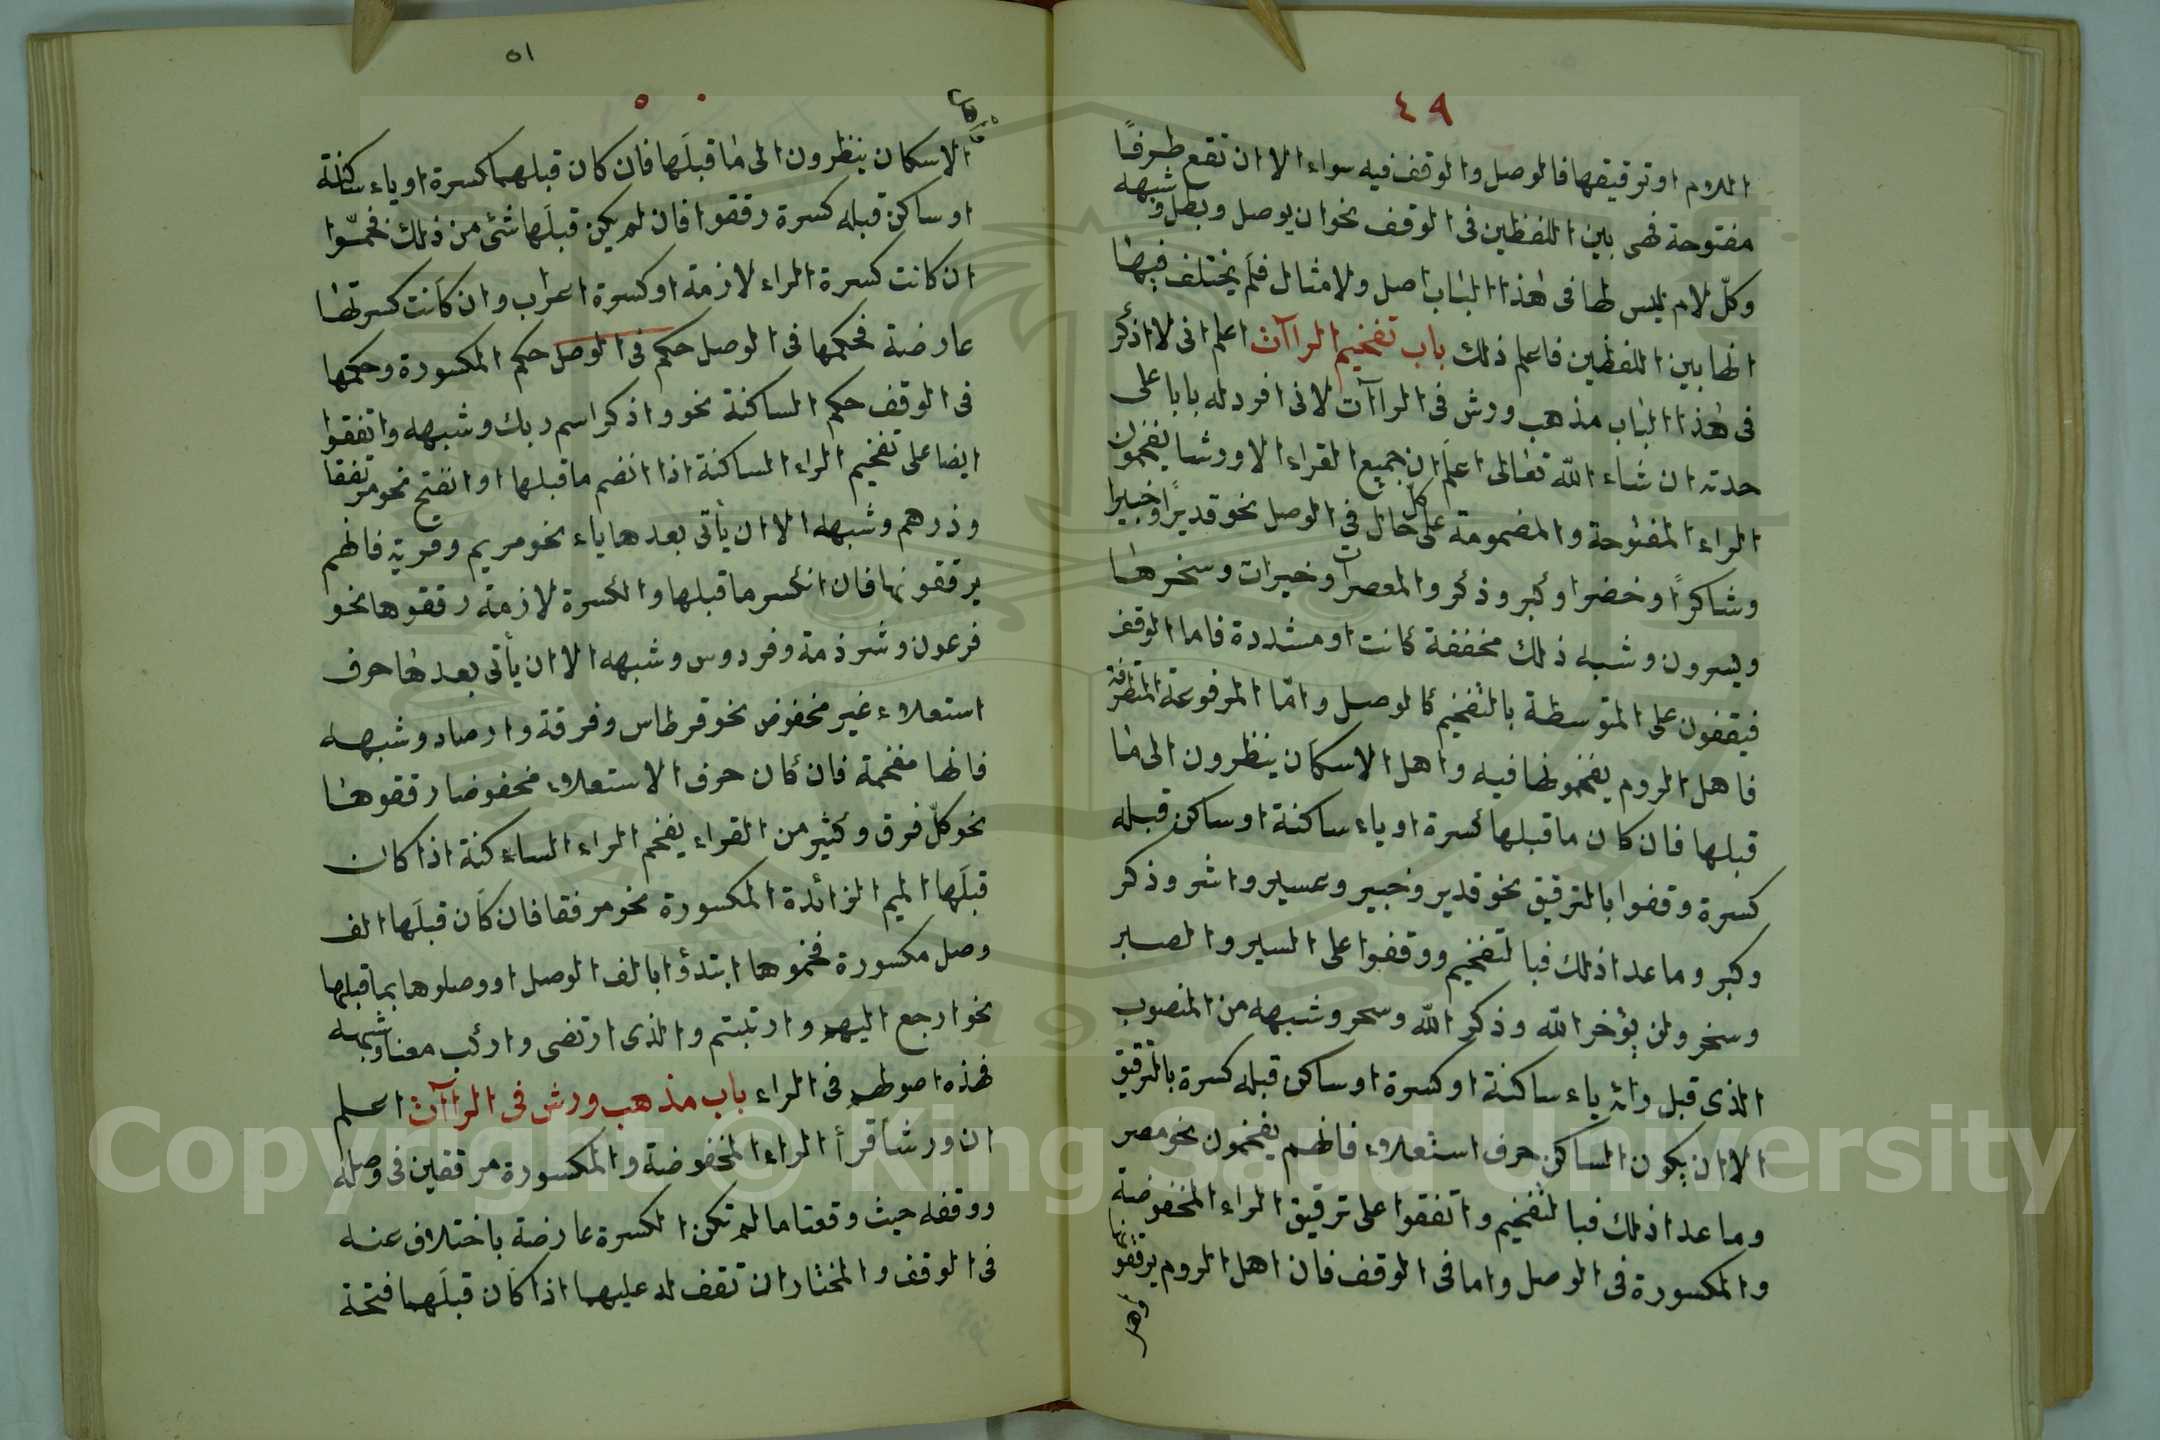 ٤٩
اللام او ترقيقها فالوصل والوقف فيه سواء الا ان تقع طرفًا
مفتوحة فهى بين اللفظين فى الوقف نحو ان يوصل وبطل وشبهه
وكلّ لام ليس لها فى هٰذا الباب اصل ولا مثال فلَم يختلف فيها
انها بين اللفظين فاعلم ذلك باب تفخيم الراآت اعلم انى لا اذكر
فى هٰذا الباب مذهب ورش فى الراآت لانى افرد له بابا على
حدته ان شاء اللّه تعٰالى اعلَم ان جميع القراء الا ورشا يفخمون
الراء المفتوحة والمضمومة على كلّ حال فى الوصل نحو قديرًا وخبيرا
وشاكرًا وخضرا وكبر وذكر والمعصرات وخيرات وسخرها
ويسرون وشبه ذلك مخففة كانت او مشددة فاما الوقف
فيقفون على المتوسطة بالتفخيم كالوصل وامّا المرفوعة المتطرفة
فاهل الروم يفخمونها فيه واهل الاسكان ينظرون الى مٰا
قبلها فان كان ما قبلها كسرة او ياء ساكنة او ساكن قبله
كسرة وقفوا بالترقيق نحو قدير وخبير وعسير واشر وذكر
وكبر وما عدا ذلك فبالتفخيم ووقفوا على السير والصبر
وسخر ولن يؤخر اللّه وذكر اللّه وسحر وشبهه من المنصوب
الذى قبل رائه ياء ساكنة او كسرة او ساكن قبله كسرة بالترقيق
الا ان يكون الساكن حرف استعلاء فانهم يفخمون نحو مصر
وما عدا ذلك فبالتفخيم واتفقوا على ترقيق الراء المخفوضة
والمكسورة فى الوصل واما فى الوقف فان اهل الروم يرققونها
واهل
٥١
٥٠
الاسكان ينظرون الى مٰا قبلَها فان كان قبلهما كسرة او ياء ساكنة
او ساكن قبله كسرة رققوا فان لم يكن قبلَها شئ من ذلك فخمّوا
ان كانت كسرة الراء لازمة او كسرة اعراب وان كانت كسرتها
عارضة فحكمها فى الوصل حكم فى الوصل حكم المكسورة وحكمها
فى الوقف حكم الساكنة نحو واذكر اسم ربك وشبهه واتفقوا
ايضا على تفخيم الراء الساكنة اذا انضم ما قبلها او انفتح نحو مرتفقا
وذرهم وشبهه الا ان يأتى بعدها ياء نحو مريم وقرية فانهم
يرققونها فان انكسر ما قبلها والكسرة لازمة رققوها نحو
فرعون وشرذمة وفردوس وشبهه الا ان يأتى بعدها حرف
استعلاء غير مخفوض نحو قرطاس وفرقة وارصاد وشبهه
فانها مفخمة فان كان حرف الاستعلاء مخفوضا رققوها
نحو كلّ فرق وكثير من القراء يفخم الراء الساءكنة اذا كان
قبلَها الميم الزائدة المكسورة نحو مرفقا فان كان قبلَها الف
وصل مكسورة فخموها ابتدؤا بالف الوصل او وصلوها بما قبلها
نحو ارجع اليهم وارتبتم والذى ارتضى واركب معنا وشبهه
فهذه اصولهم فى الراء باب مذهب ورش فى الراآت اعلم
ان ورشا قرأ الراء المخفوضة والمكسورة مرققين فى وصله
ووقفه حيث وقعتا ما لم تكن الكسرة عارضة باختلاف عنه
فى الوقف والمختار ان تقف له عليهما اذا كان قبلَهما فتحة
Copyright © King Saud University